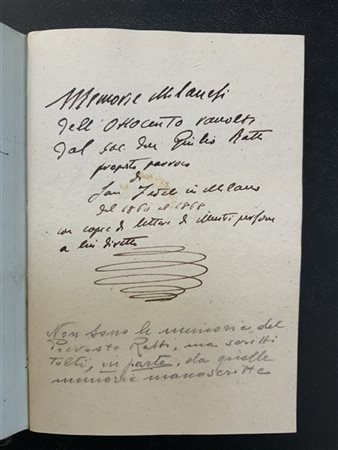 Memorie Milanesi
dell'Ottocento raccolte
dal sac. don Giulio Ratti
proposto parroco
di
San Fedele in Milano
dal 1860 al 1868
con copie di lettere di illustri persone
a lui dirette
Non sono le memorie del
Prevosto Ratti, ma scritti
tolti, in parte, da quelle
memorie manoscritte